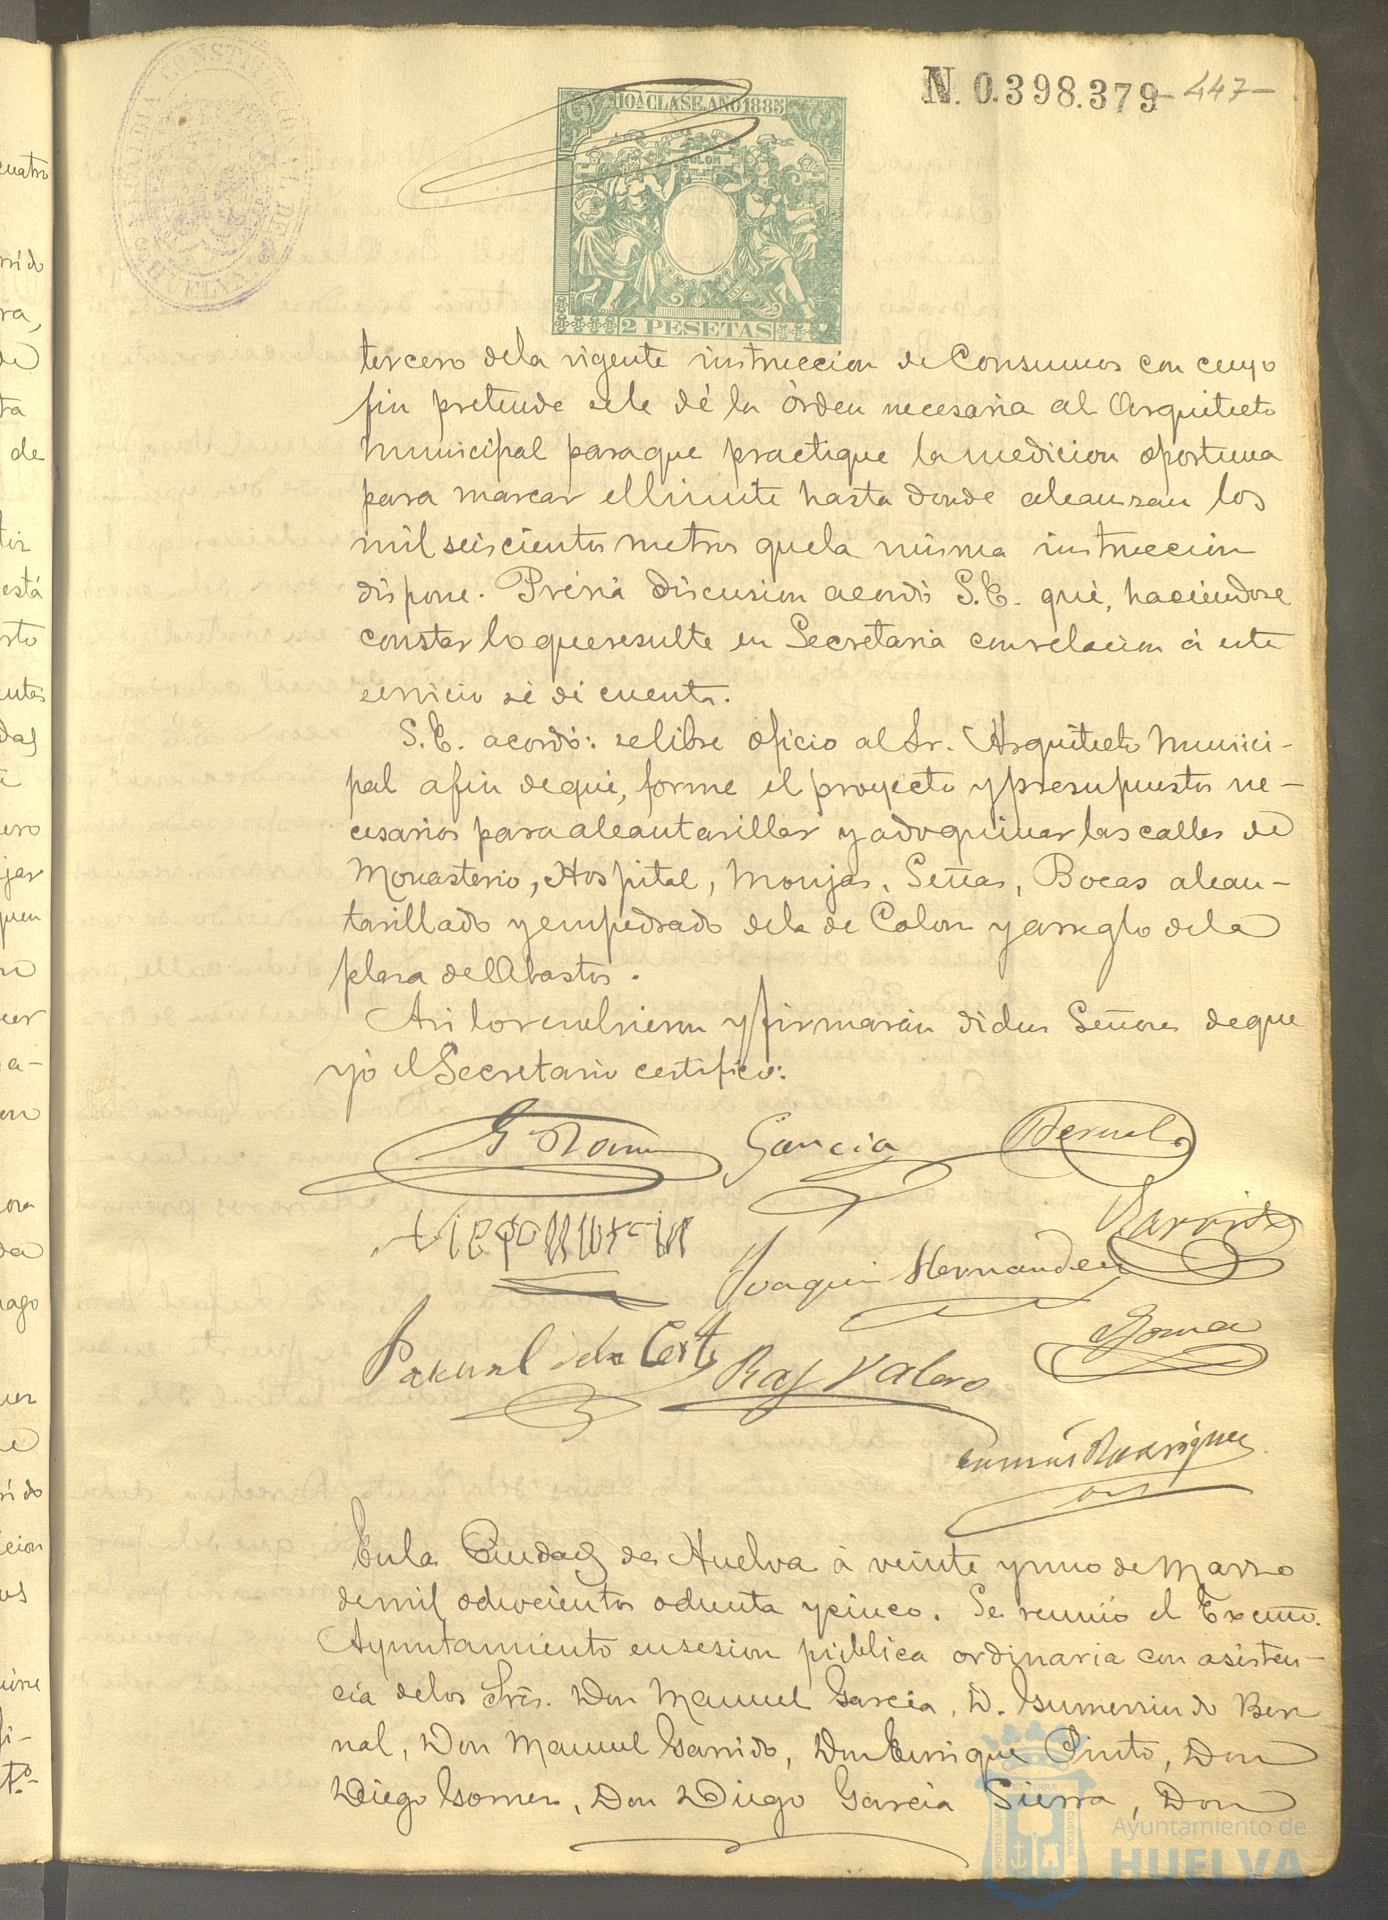 N. 0.398.379 - 447 -
ALCALDIA CONSTITUCIONAL DE HUELVA
10ª CLASE. AÑO 1885
COLON
2 PESETAS
tercero dela vigente instruccion de Consumos con cuyo
fin pretende sele dé la órden necesaria al Arquitecto
Municipal paraque practique la medicion oportuna
para marcar ellimite hasta donde alcanzan los
mil seiscientos metros quela misma instruccion
dispone. Prévia discusion acordó S.E. qué, haciendose
constar lo queresulte en Secretaria conrelacion á este
servicio sé dé cuenta.
S.E. acordó: selibre oficio al Sr. Arquitecto Munici-
pal afin dequé, forme el proyecto y presupuestos ne-
cesarios para alcantarillar y adoquinar las calles de
Monasterio, Hospital, Monjas, Señas, Bocas alcan-
tarillado y empedrado dela de Colon y arreglo dela
plaza de Abastos.
Asi lo resolvieron y firmarán dichos Señores deque
yó el Secretario certifico:
García Bernal
Garrido
Joaquin Hernandez
Pascual dela Corte Raf Valero
Gomez
Tomás Rodriguez
Enla Ciudad de Huelva á veinte y uno de Marzo
demil ochocientos ochenta y cinco. Se reunió el Excmo.
Ayuntamiento ensesion pública ordinaria con asisten-
cia delos Sres. Don Manuel García, D. Gumersindo Ber
nal, Don Manuel Garrido, Don Enrique Pinto, Don
Diego Gomez, Don Diego García Sierra, Don
Ayuntamiento de
HUELVA